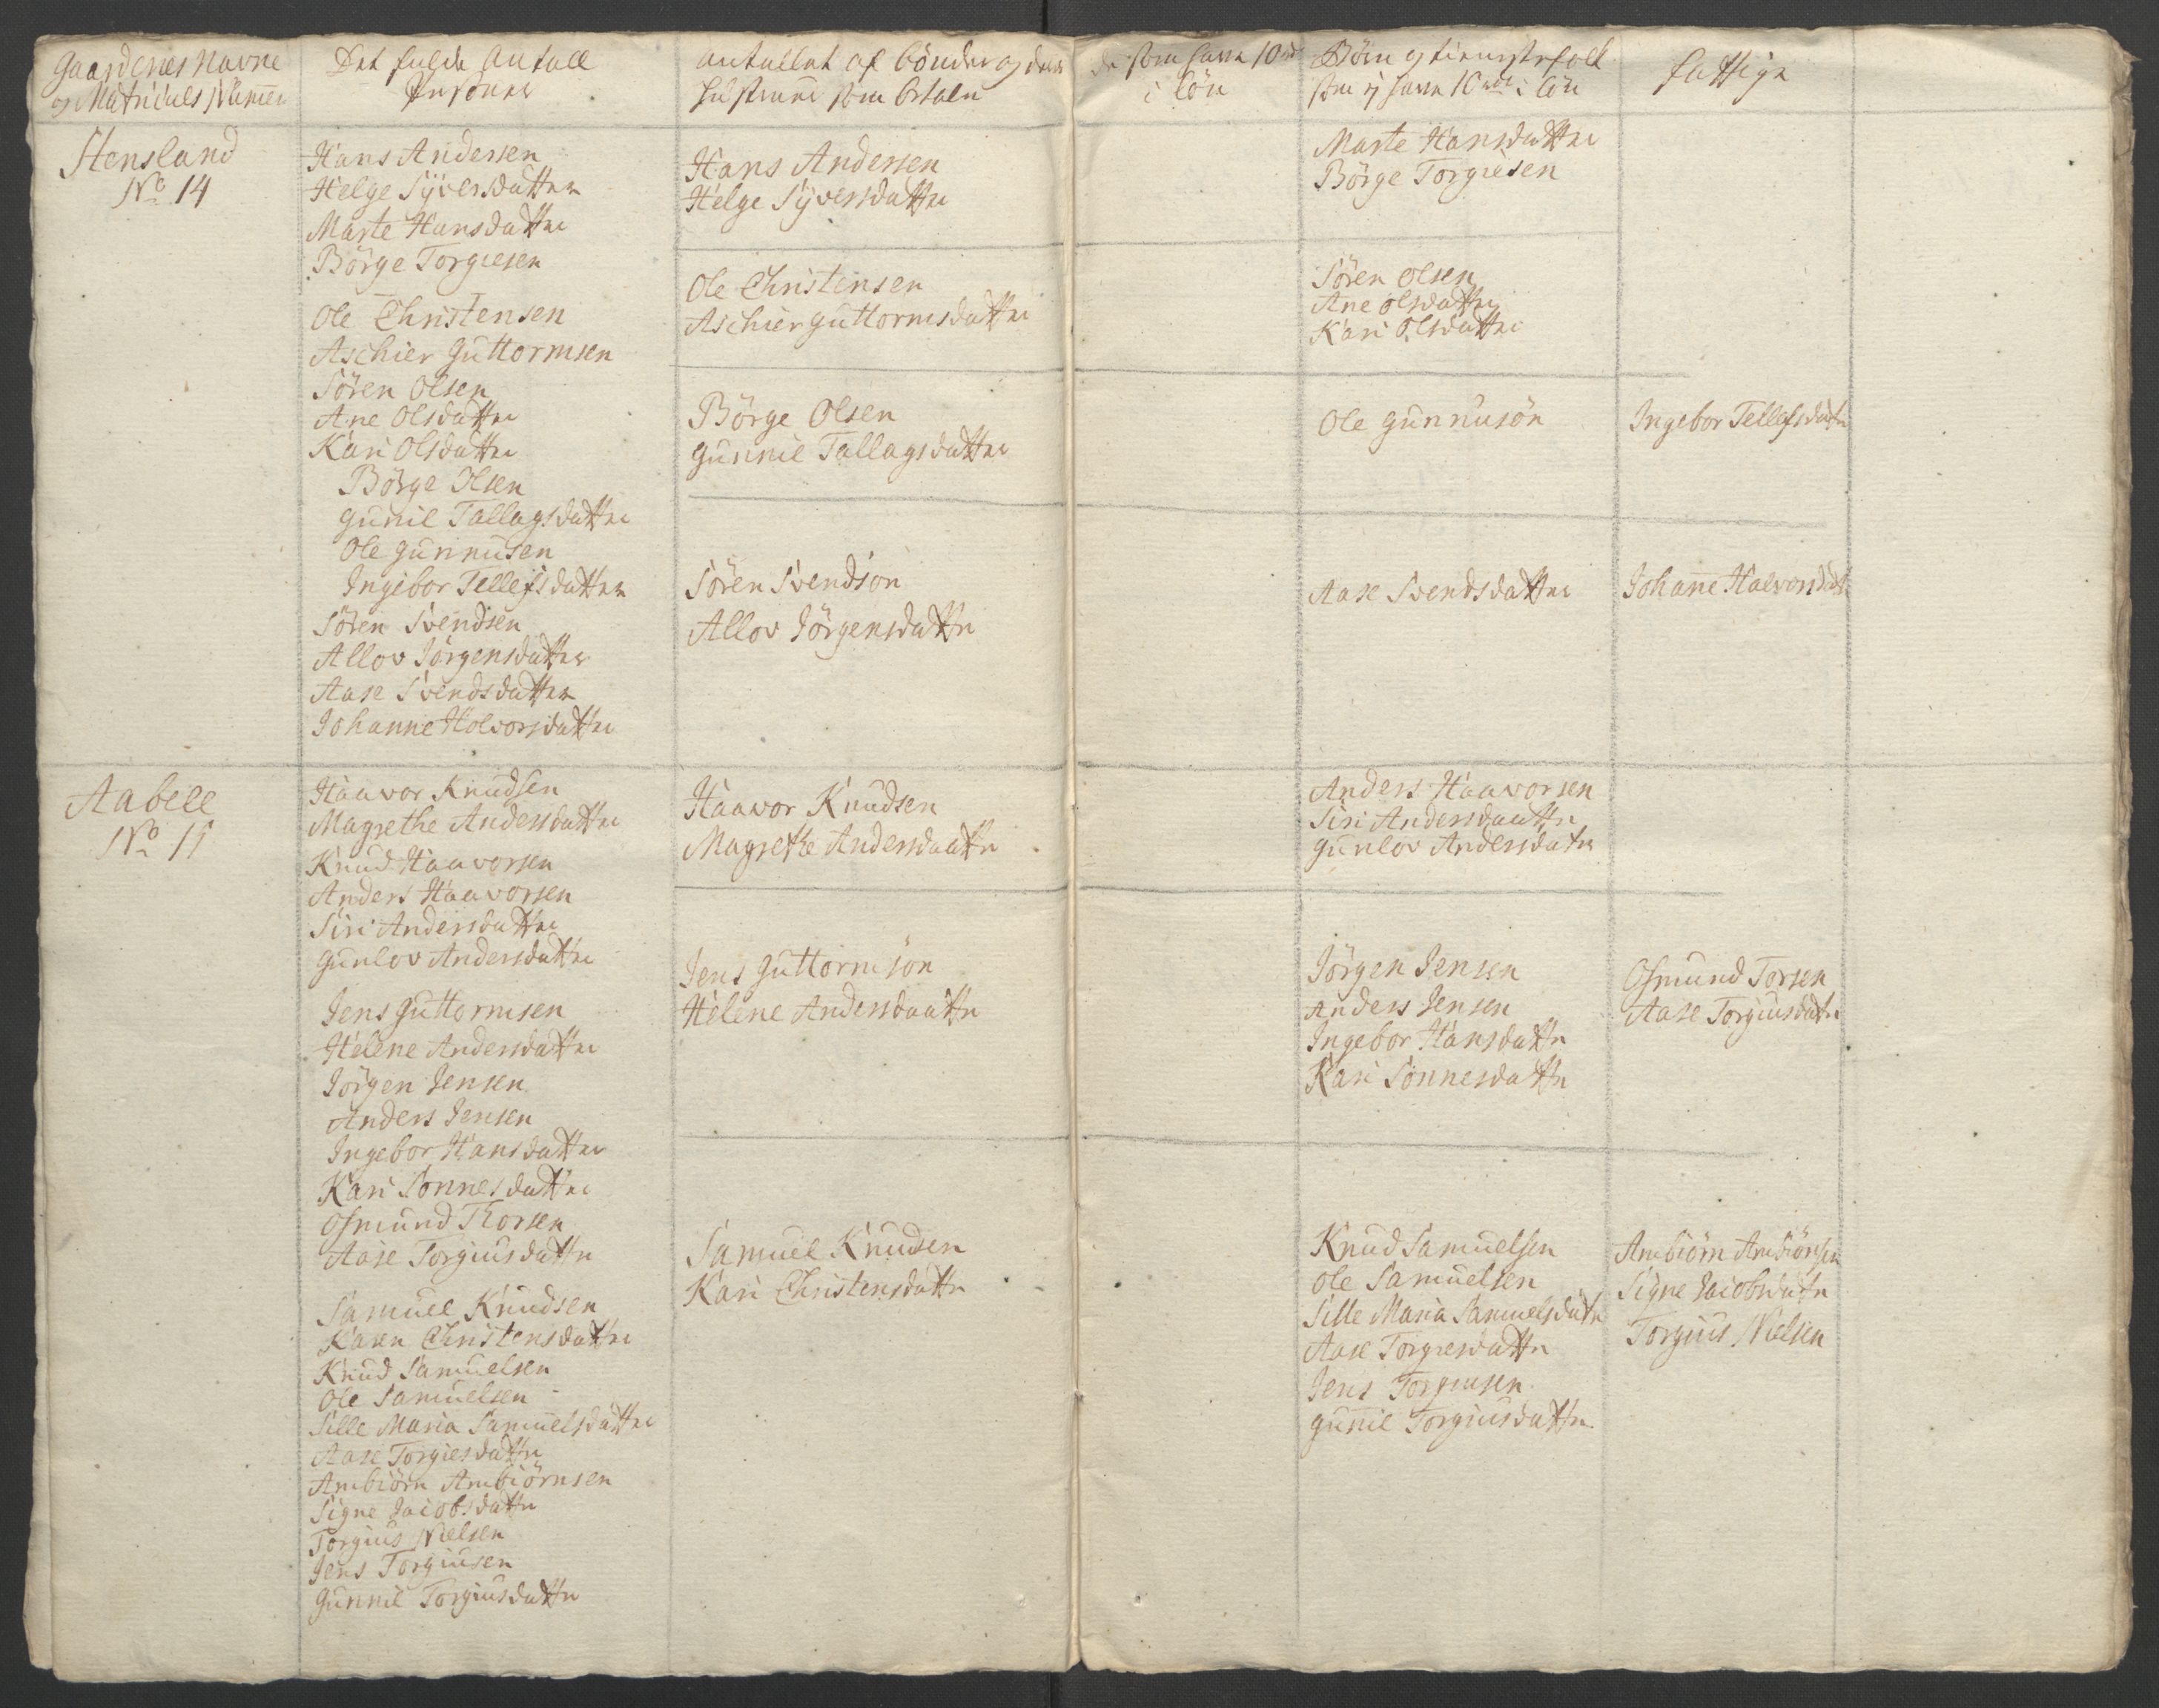 Gaardenes Navne
og Matriculs Numer
Det fulde Antall
Personer
Antallet af bönder og deres
hustruer som betaler
de som have 10 rdr
i lön
Börn og tienistefolk
som ej have 10 rdr i lön
fattige
Stensland
No 14
Hans Andersen
Helge Syversdatter
Marte Hansdatter
Börge Torgiesen
Ole Christensen
Aschier Guttormsen
Sören Olsen
Ane Olsdatter
Kari Olsdatter
Börge Olsen
Gunil Tallagsdatter
Ole Gunnusen
Ingebor Tellefsdatter
Sören Svendsen
Allov Jörgensdatter
Aase Svendsdatter
Johanne Holvorsdatter
Hans Andersen
Helge Syversdatter
Ole Christensen
Aschier Guttormsdatter
Börge Olsen
Gunnil Tallagsdatter
Sören Svendson
Allov Jörgensdatter
Marte Hansdatter
Börge Torgiesen
Sören Olsen
Ane Olsdatter
Kari Olsdatter
Ole Gunnusön
Aase Svendsdatter
Ingebor Tellefsdatr
Johane Halvorsdatr
Aabell
No 15
Haavor Knudsen
Magrethe Andersdatter
Knud Haavorsen
Anders Haavorsen
Siri Andersdatter
Gunlov Andersdatter
Jens Guttormsen
Helene Andersdatter
Jörgen Jensen
Anders Jensen
Ingebor Hansdatter
Kari Sönnesdatter
Osmund Thorsen
Aase Torgiusdattr
Samuel Knudsen
Karen Christensdatter
Knud Samuelsen
Ole Samuelsen
Sille Maria Samuelsdatter
Aase Torgiesdattr
Ambiörn Ambiörnsen
Signe Jacobsdattr
Torgius Nielsen
Jens Torgiusen
Gunnil Torgiusdattr
Haavor Knudsen
Magrethe Andersdaattr
Jens Guttormsön
Helene Andersdaattr
Samuel Knudsen
Kari Christensdattr
Anders Haavorsen
Siri Andersdaattr
Gunlov Andersdatr
Jörgen Jensen
Anders Jensen
Ingebor Hansdattr
Kari Sönnesdattr
Knud Samuelsen
Ole Samuelsen
Sille Maria Samuelsdatr
Aase Torgiesdattr
Jens Torgiusen
Gunil Torgiusdattr
Osmund Torsen
Aase Torgiusdatr
Ambiörn Ambiörnsen
Signe Jacobsdatr
Torgius Nielsen